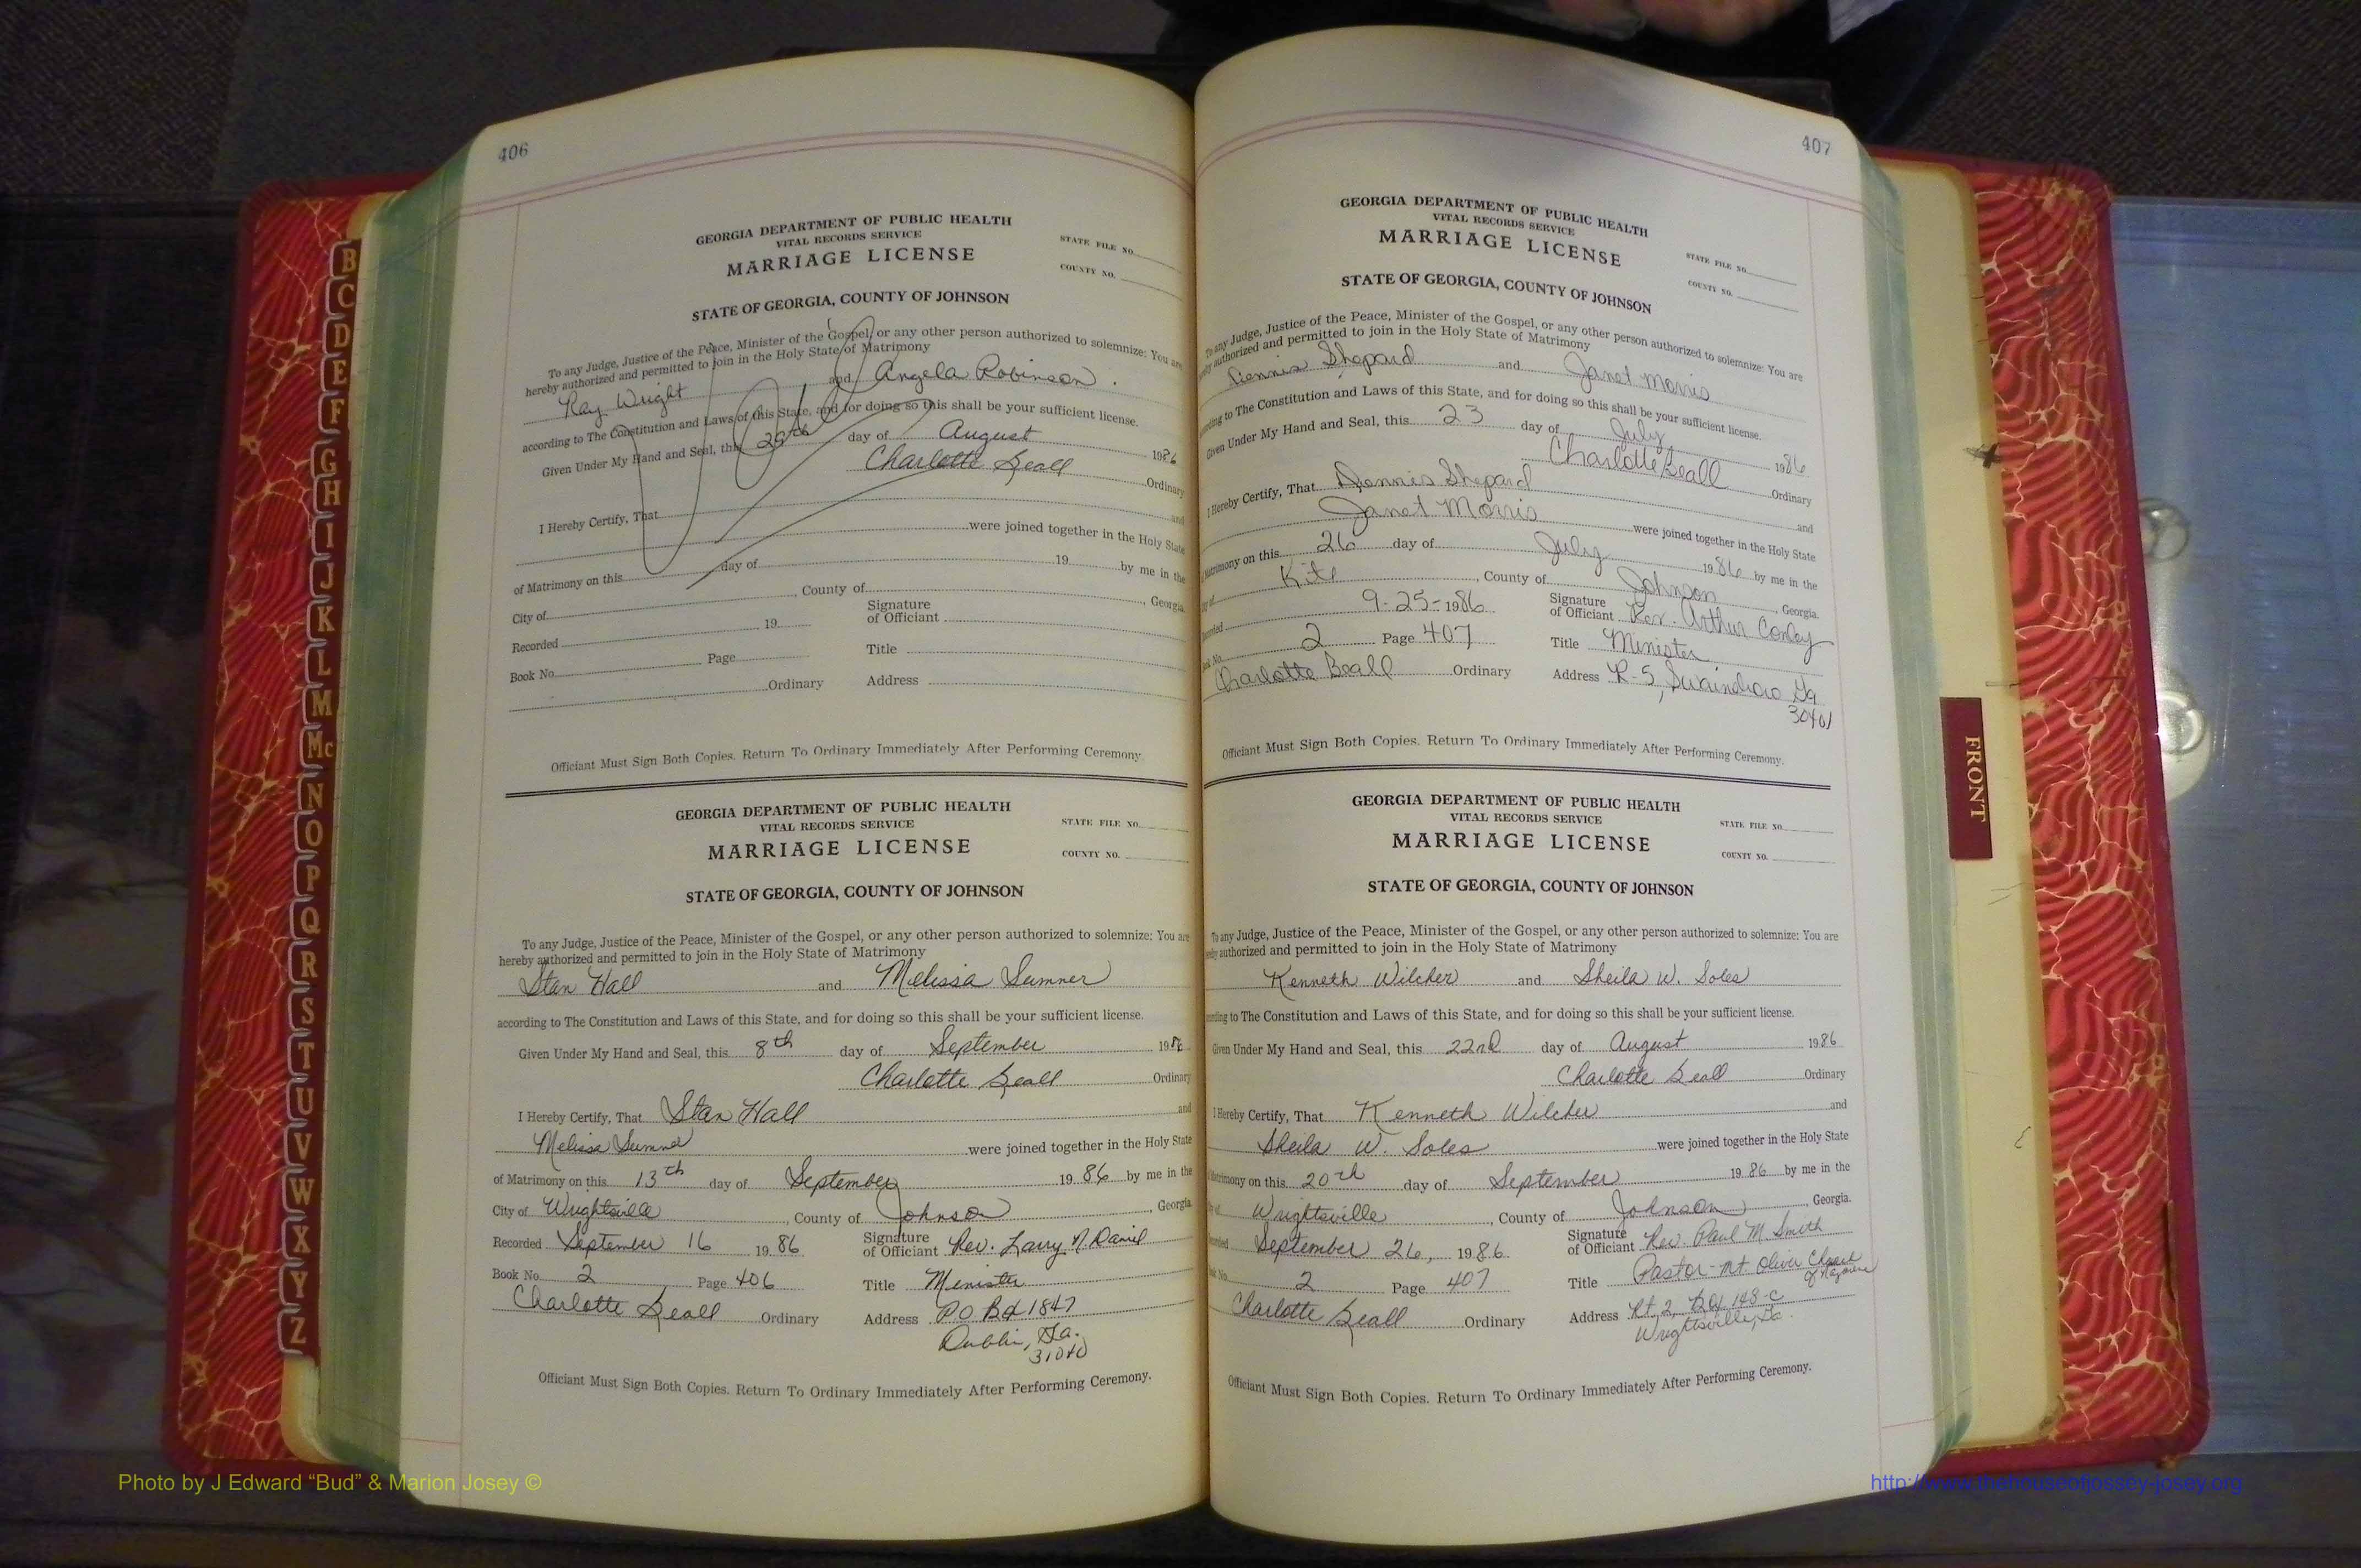 406
GEORGIA DEPARTMENT OF PUBLIC HEALTH
VITAL RECORDS SERVICE
MARRIAGE LICENSE
STATE FILE NO.
COUNTY NO.
STATE OF GEORGIA, COUNTY OF JOHNSON
To any Judge, Justice of the Peace, Minister of the Gospel, or any other person authorized to solemnize: You are
hereby authorized and permitted to join in the Holy State of Matrimony
Ray Wright and Angela Robinson
according to The Constitution and Laws of this State, and for doing so this shall be your sufficient license.
Given Under My Hand and Seal, this 29th day of August 1986
Charlotte Beall Ordinary
I Hereby Certify, That and
were joined together in the Holy State
of Matrimony on this day of 19 by me in the
City of , County of , Georgia
Recorded 19 Signature of Officiant
Book No. Page Title
Ordinary Address
Officiant Must Sign Both Copies. Return To Ordinary Immediately After Performing Ceremony.
GEORGIA DEPARTMENT OF PUBLIC HEALTH
VITAL RECORDS SERVICE
MARRIAGE LICENSE
STATE FILE NO.
COUNTY NO.
STATE OF GEORGIA, COUNTY OF JOHNSON
To any Judge, Justice of the Peace, Minister of the Gospel, or any other person authorized to solemnize: You are
hereby authorized and permitted to join in the Holy State of Matrimony
Stan Hall and Melissa Sumner
according to The Constitution and Laws of this State, and for doing so this shall be your sufficient license.
Given Under My Hand and Seal, this 8th day of September 1986
Charlotte Beall Ordinary
I Hereby Certify, That Stan Hall and
Melissa Sumner were joined together in the Holy State
of Matrimony on this 13th day of September 19 86 by me in the
City of Wrightsville , County of Johnson , Georgia
Recorded September 16 19 86 Signature of Officiant Rev. Larry N. Daniel
Book No. 2 Page 406 Title Minister
Charlotte Beall Ordinary Address PO Bx 1847
Dublin, Ga.
31040
Officiant Must Sign Both Copies. Return To Ordinary Immediately After Performing Ceremony.
407
GEORGIA DEPARTMENT OF PUBLIC HEALTH
VITAL RECORDS SERVICE
MARRIAGE LICENSE
STATE FILE NO.
COUNTY NO.
STATE OF GEORGIA, COUNTY OF JOHNSON
To any Judge, Justice of the Peace, Minister of the Gospel, or any other person authorized to solemnize: You are
authorized and permitted to join in the Holy State of Matrimony
Dennis Shepard and Janet Morris
to The Constitution and Laws of this State, and for doing so this shall be your sufficient license.
Given Under My Hand and Seal, this 23 day of July 1986
Charlotte Beall Ordinary
I Hereby Certify, That Dennis Shepard and
Janet Morris were joined together in the Holy State
Matrimony on this 26 day of July 19 86 by me in the
Kite , County of Johnson , Georgia.
9-25-1986 Signature of Officiant Rev. Arthur Conley
2 Page 407 Title Minister
Charlotte Beall Ordinary Address R-5, Swainsboro Ga
30401
Officiant Must Sign Both Copies. Return To Ordinary Immediately After Performing Ceremony.
GEORGIA DEPARTMENT OF PUBLIC HEALTH
VITAL RECORDS SERVICE
MARRIAGE LICENSE
STATE FILE NO.
COUNTY NO.
STATE OF GEORGIA, COUNTY OF JOHNSON
To any Judge, Justice of the Peace, Minister of the Gospel, or any other person authorized to solemnize: You are
authorized and permitted to join in the Holy State of Matrimony
Kenneth Wilcher and Sheila W. Soles
to The Constitution and Laws of this State, and for doing so this shall be your sufficient license.
Given Under My Hand and Seal, this 22nd day of August 1986
Charlotte Beall Ordinary
I Hereby Certify, That Kenneth Wilcher and
Sheila W. Soles were joined together in the Holy State
Matrimony on this 20th day of September 19 86 by me in the
Wrightsville , County of Johnson , Georgia.
September 26, 1986. Signature of Officiant Rev. Paul M. Smith
2 Page 407 Title Pastor-Mt. Oliver Church of Nazarene
Charlotte Beall Ordinary Address Rt. 2, Box 148-C
Wrightsville, Ga.
Officiant Must Sign Both Copies. Return To Ordinary Immediately After Performing Ceremony.
B
C
D
E
F
G
H
I
J
K
L
M
Mc
N
O
P
Q
R
S
T
U
V
W
X
Y
Z
FRONT
Photo by J Edward “Bud” & Marion Josey ©
http://www.thehouseofjossey-josey.org